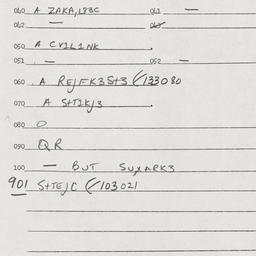 040 A ZAKA,L8BC 041 —
042 —
050 A CVILINK .
051 — 052 —
060 A REJFK3S+3 (/133080
070 A S+TIKJ3 .
080 O
090 QR
100 — BUT SUXARK3
901 S+TEJC (/103021